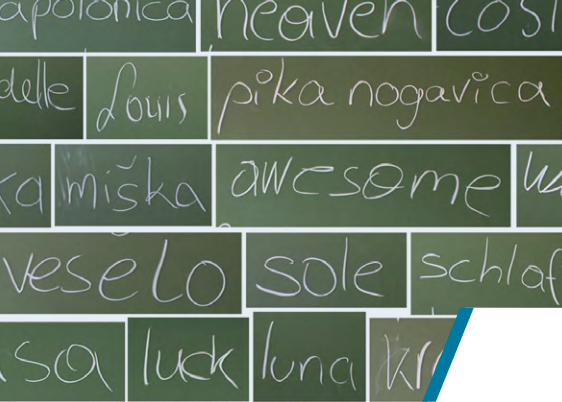 apolonica heaven cosi
delle Louis pika nogavica
ka miška awesome
veselo sole schlaf
sa luck luna kr